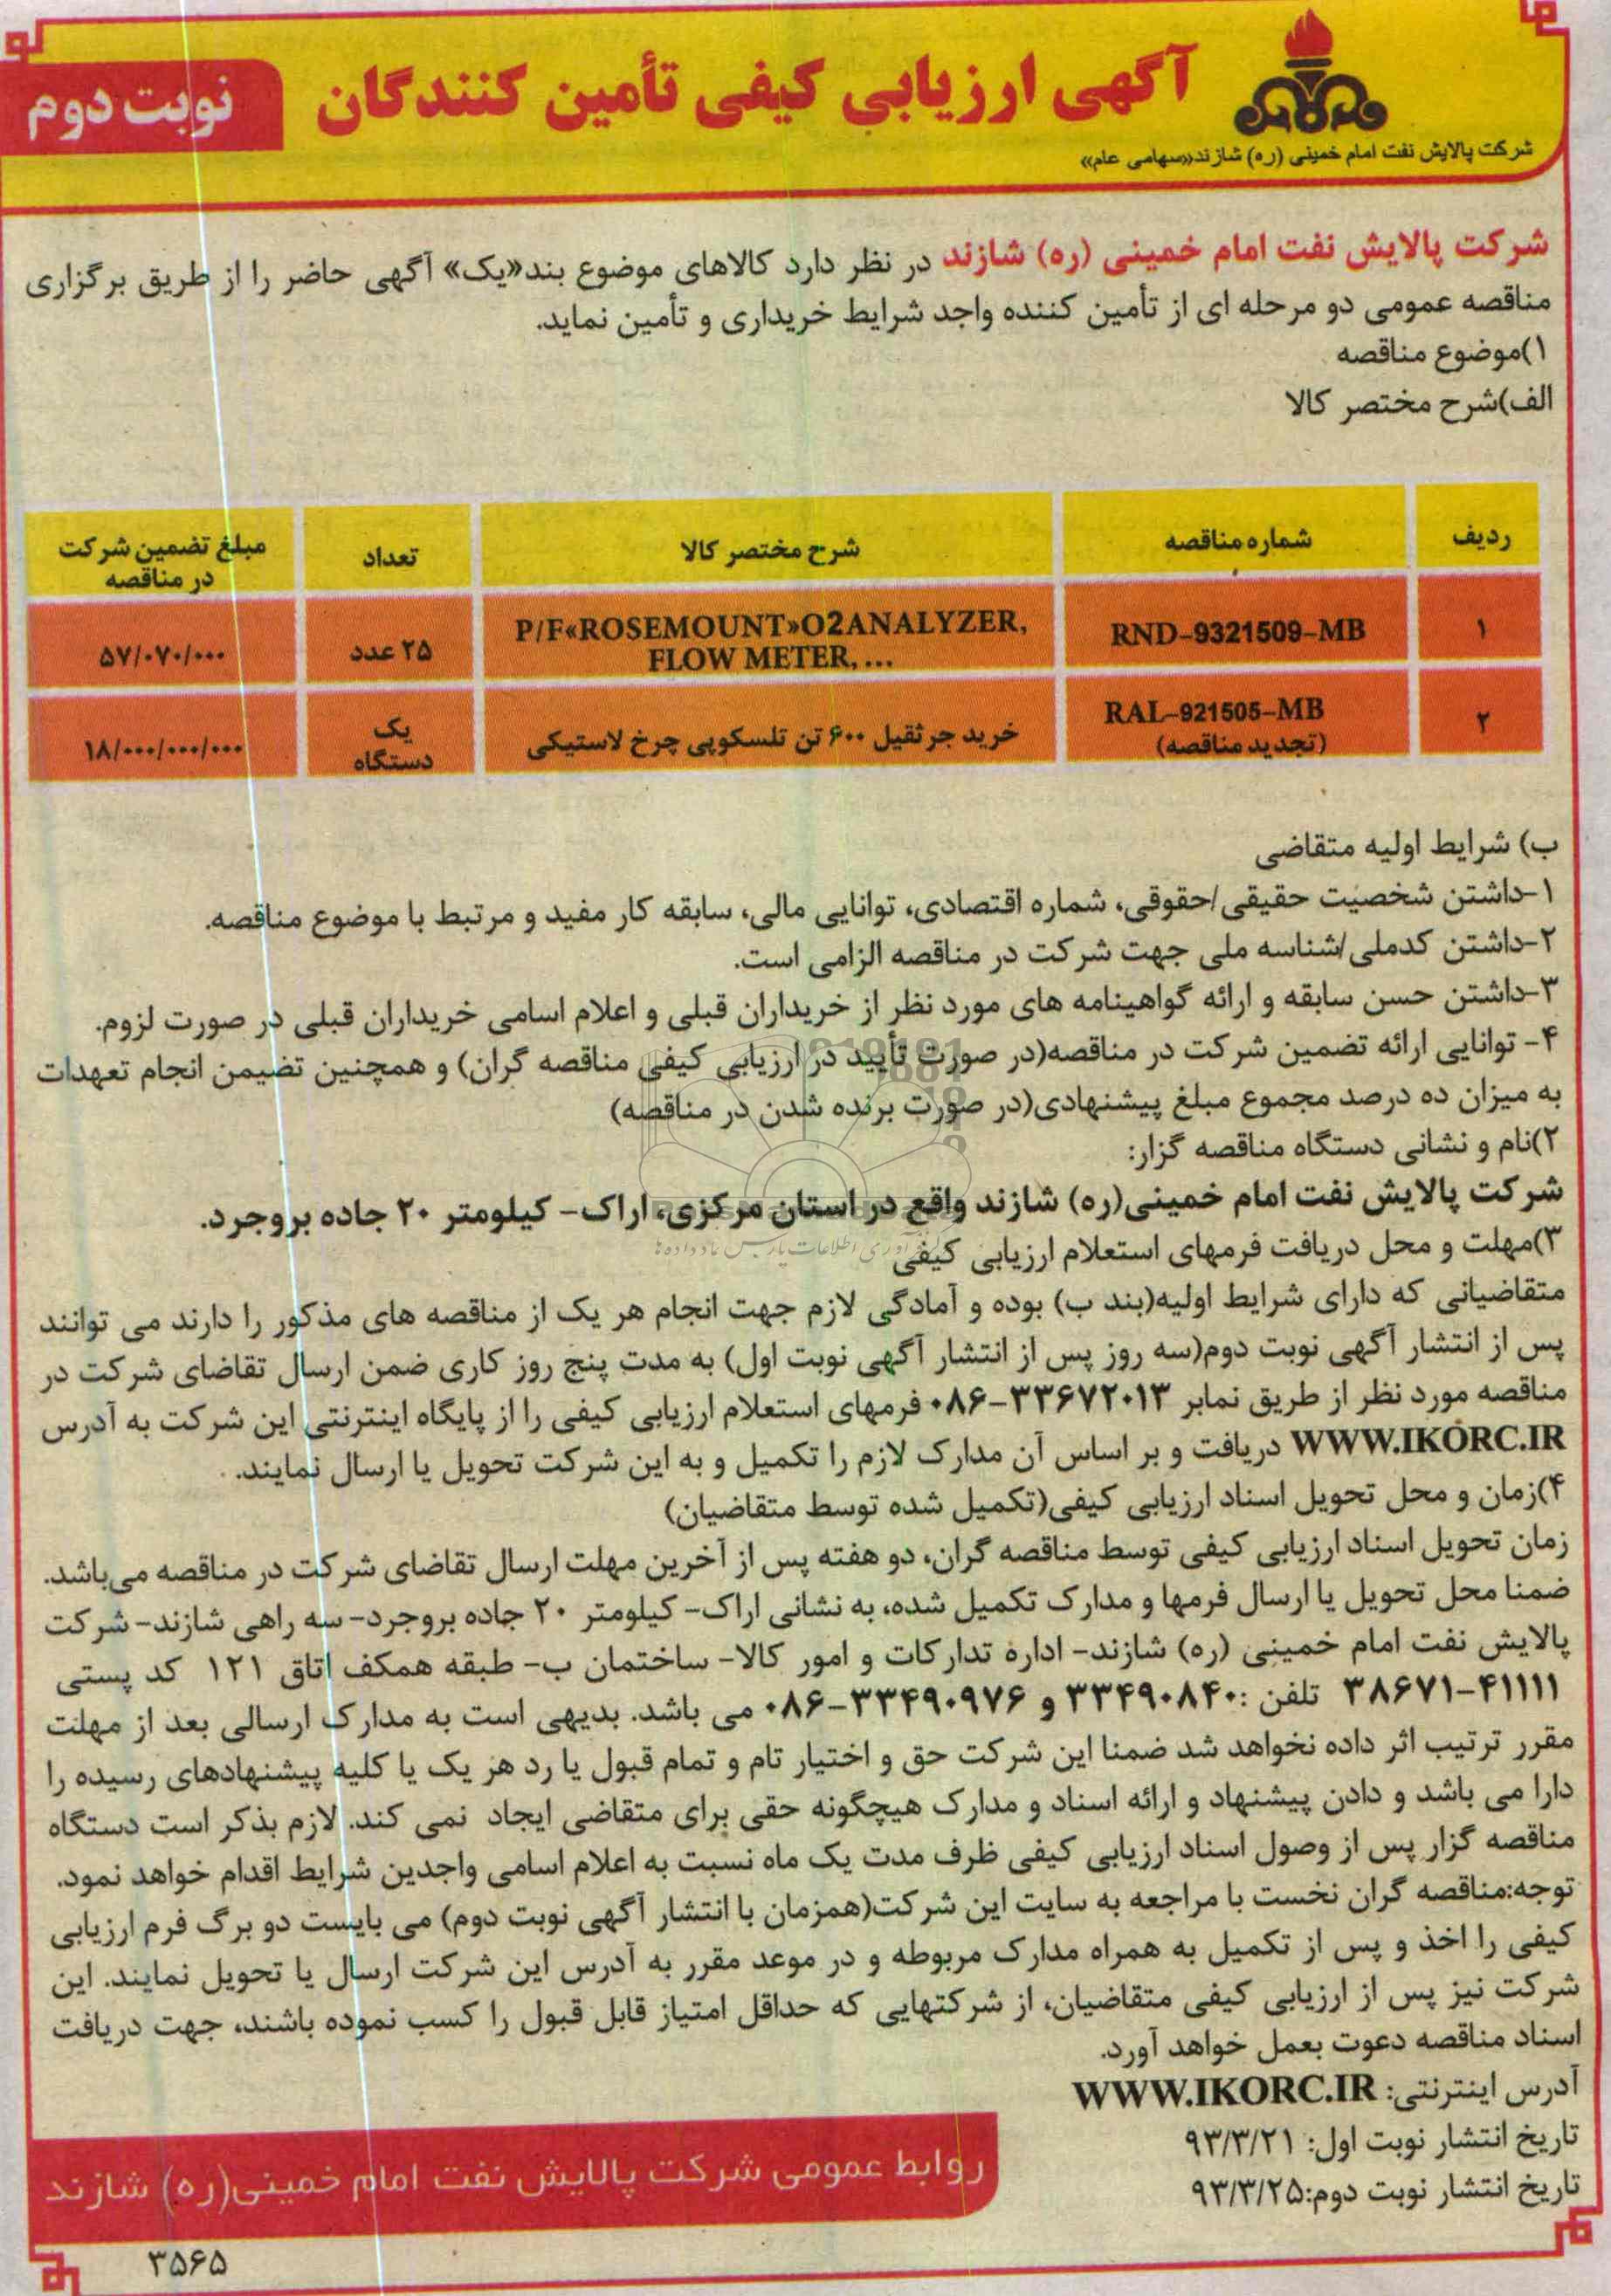 آگهی ارزیابی کیفی تأمین کنندگان
نوبت دوم
شرکت پالایش نفت امام خمینی (ره) شازند«سهامی عام»
شرکت پالایش نفت امام خمینی (ره) شازند در نظر دارد کالاهای موضوع بند«یک» آگهی حاضر را از طریق برگزاری
مناقصه عمومی دو مرحله ای از تأمین کننده واجد شرایط خریداری و تأمین نماید.
۱)موضوع مناقصه
الف)شرح مختصر کالا
ردیف شماره مناقصه شرح مختصر کالا تعداد مبلغ تضمین شرکت در مناقصه
۱ RND-9321509-MB P/F«ROSEMOUNT»O2ANALYZER, FLOW METER, ... ۲۵ عدد ۵۷/۰۷۰/۰۰۰
۲ RAL-921505-MB (تجدید مناقصه) خرید جرثقیل ۶۰۰ تن تلسکوپی چرخ لاستیکی یک دستگاه ۱۸/۰۰۰/۰۰۰/۰۰۰
ب) شرایط اولیه متقاضی
۱-داشتن شخصیت حقیقی/حقوقی، شماره اقتصادی، توانایی مالی، سابقه کار مفید و مرتبط با موضوع مناقصه.
۲-داشتن کدملی/شناسه ملی جهت شرکت در مناقصه الزامی است.
۳-داشتن حسن سابقه و ارائه گواهینامه های مورد نظر از خریداران قبلی و اعلام اسامی خریداران قبلی در صورت لزوم.
۴- توانایی ارائه تضمین شرکت در مناقصه(در صورت تأیید در ارزیابی کیفی مناقصه گران) و همچنین تضیمن انجام تعهدات
به میزان ده درصد مجموع مبلغ پیشنهادی(در صورت برنده شدن در مناقصه)
۲)نام و نشانی دستگاه مناقصه گزار:
شرکت پالایش نفت امام خمینی(ره) شازند واقع در استان مرکزی، اراک- کیلومتر ۲۰ جاده بروجرد.
۳)مهلت و محل دریافت فرمهای استعلام ارزیابی کیفی
متقاضیانی که دارای شرایط اولیه(بند ب) بوده و آمادگی لازم جهت انجام هر یک از مناقصه های مذکور را دارند می توانند
پس از انتشار آگهی نوبت دوم(سه روز پس از انتشار آگهی نوبت اول) به مدت پنج روز کاری ضمن ارسال تقاضای شرکت در
مناقصه مورد نظر از طریق نمابر ۳۳۶۷۲۰۱۳-۰۸۶ فرمهای استعلام ارزیابی کیفی را از پایگاه اینترنتی این شرکت به آدرس
WWW.IKORC.IR دریافت و بر اساس آن مدارک لازم را تکمیل و به این شرکت تحویل یا ارسال نمایند.
۴)زمان و محل تحویل اسناد ارزیابی کیفی(تکمیل شده توسط متقاضیان)
زمان تحویل اسناد ارزیابی کیفی توسط مناقصه گران، دو هفته پس از آخرین مهلت ارسال تقاضای شرکت در مناقصه می‌باشد.
ضمنا محل تحویل یا ارسال فرمها و مدارک تکمیل شده، به نشانی اراک- کیلومتر ۲۰ جاده بروجرد- سه راهی شازند- شرکت
پالایش نفت امام خمینی (ره) شازند- اداره تدارکات و امور کالا- ساختمان ب- طبقه همکف اتاق ۱۲۱ کد پستی
۳۸۶۷۱-۴۱۱۱۱ تلفن :۳۳۴۹۰۸۴۰ و ۳۳۴۹۰۹۷۶-۰۸۶ می باشد. بدیهی است به مدارک ارسالی بعد از مهلت
مقرر ترتیب اثر داده نخواهد شد ضمنا این شرکت حق و اختیار تام و تمام قبول یا رد هر یک یا کلیه پیشنهادهای رسیده را
دارا می باشد و دادن پیشنهاد و ارائه اسناد و مدارک هیچگونه حقی برای متقاضی ایجاد نمی کند. لازم بذکر است دستگاه
مناقصه گزار پس از وصول اسناد ارزیابی کیفی ظرف مدت یک ماه نسبت به اعلام اسامی واجدین شرایط اقدام خواهد نمود.
توجه:مناقصه گران نخست با مراجعه به سایت این شرکت(همزمان با انتشار آگهی نوبت دوم) می بایست دو برگ فرم ارزیابی
کیفی را اخذ و پس از تکمیل به همراه مدارک مربوطه و در موعد مقرر به آدرس این شرکت ارسال یا تحویل نمایند. این
شرکت نیز پس از ارزیابی کیفی متقاضیان، از شرکتهایی که حداقل امتیاز قابل قبول را کسب نموده باشند، جهت دریافت
اسناد مناقصه دعوت بعمل خواهد آورد.
آدرس اینترنتی: WWW.IKORC.IR
تاریخ انتشار نوبت اول: ۹۳/۳/۲۱
تاریخ انتشار نوبت دوم:۹۳/۳/۲۵
روابط عمومی شرکت پالایش نفت امام خمینی(ره) شازند
۳۵۶۵